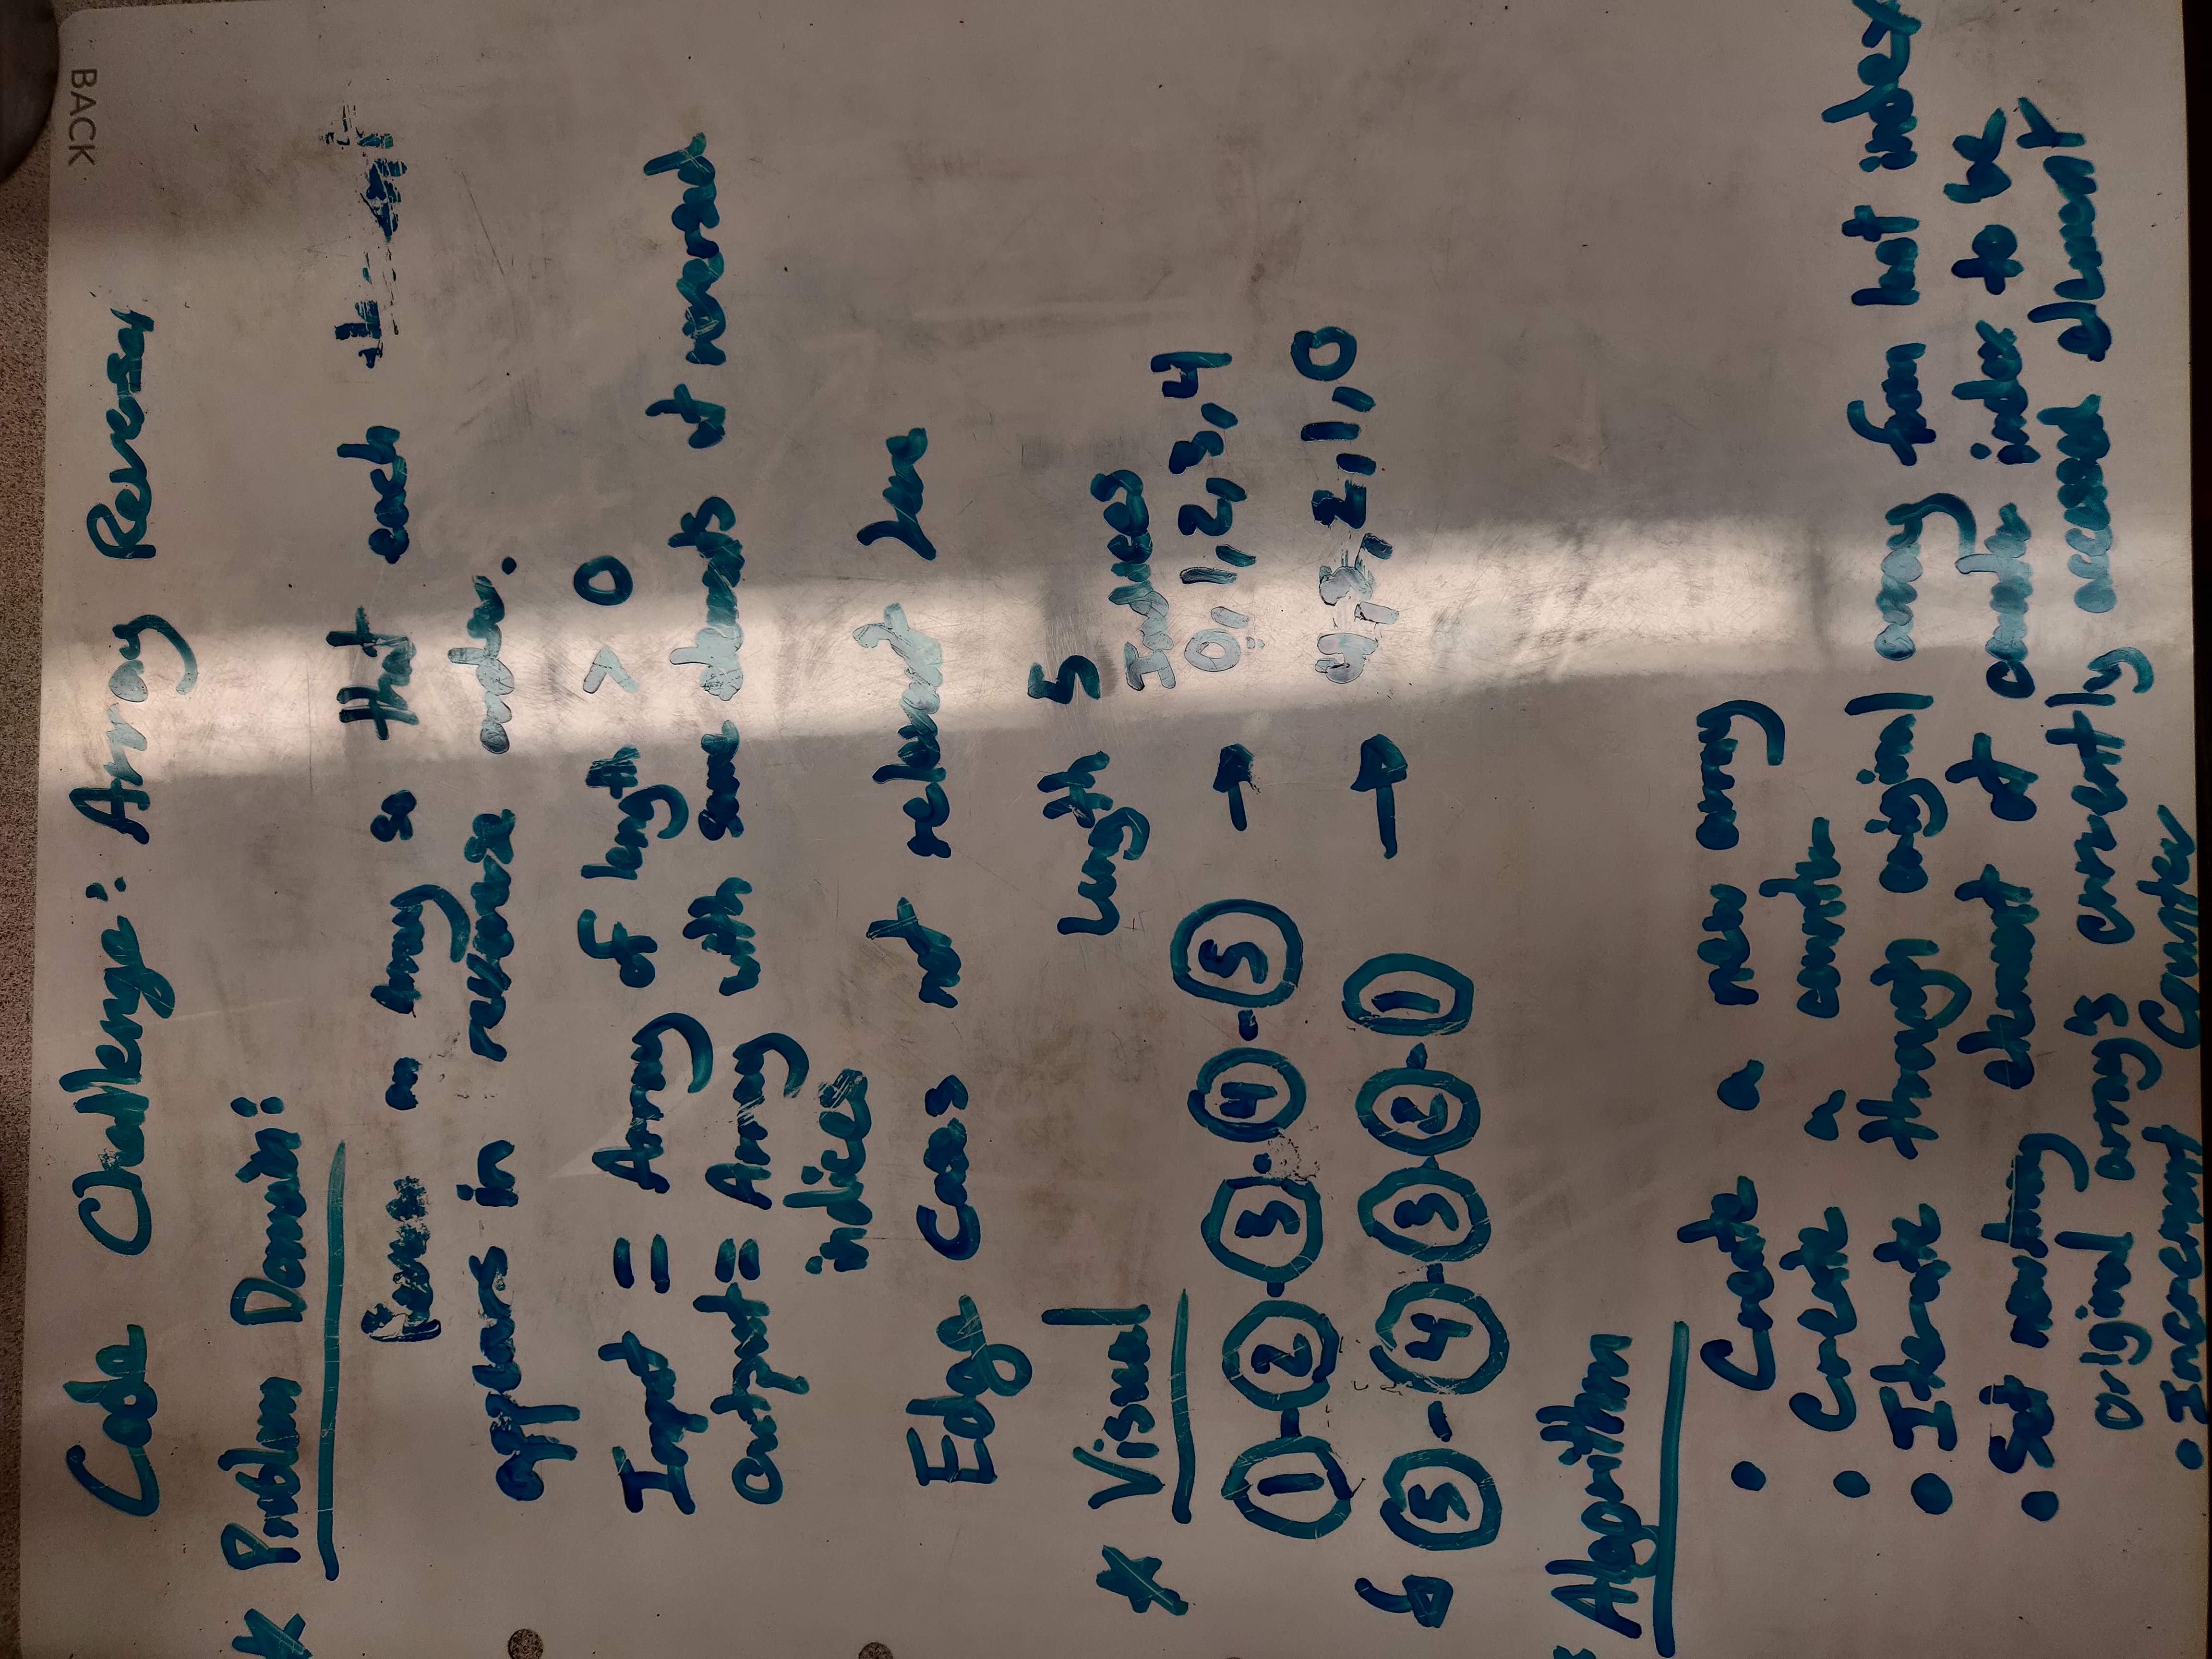 BACK
Code Challenge: Array Reversal
* Problem Domain:
Reverse an array so that each element
appears in reverse order.
Input = Array of length > 0
output = Array with same elements at reversed
indices
Edge Cases not relevant here
* Visual
Length 5
Indices
1 - 2 - 3 - 4 - 5 → 0, 1, 2, 3, 4
5 - 4 - 3 - 2 - 1 → 4, 3, 2, 1, 0
Algorithm
• Create a new array
• Create a counter
• Iterate through original array from last index
• Set newArray element at counter index to be
original array's currently accessed element
• Increment Counter